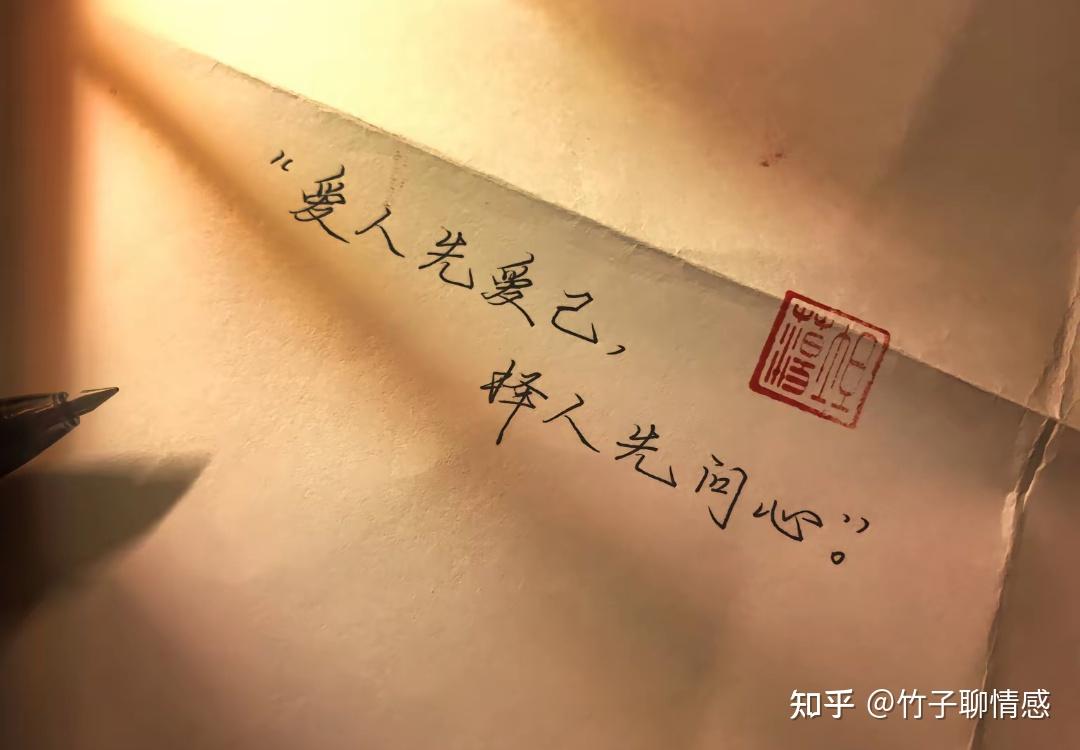 “爱人先爱己，
择人先问心”。
知乎 @竹子聊情感